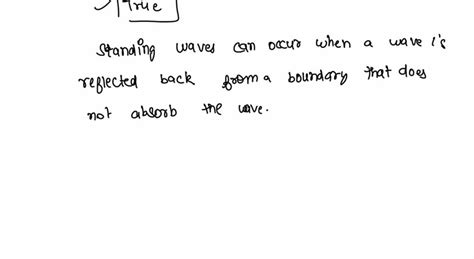 True
Standing waves can occur when a wave is
reflected back from a boundary that does
not absorb the wave.